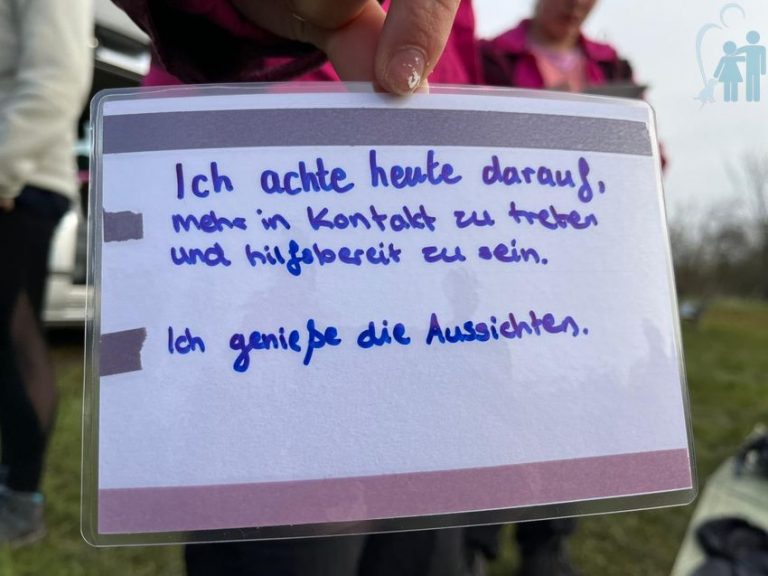 Ich achte heute darauf,
mehr in Kontakt zu treten
und hilfsbereit zu sein.
Ich genieße die Aussichten.